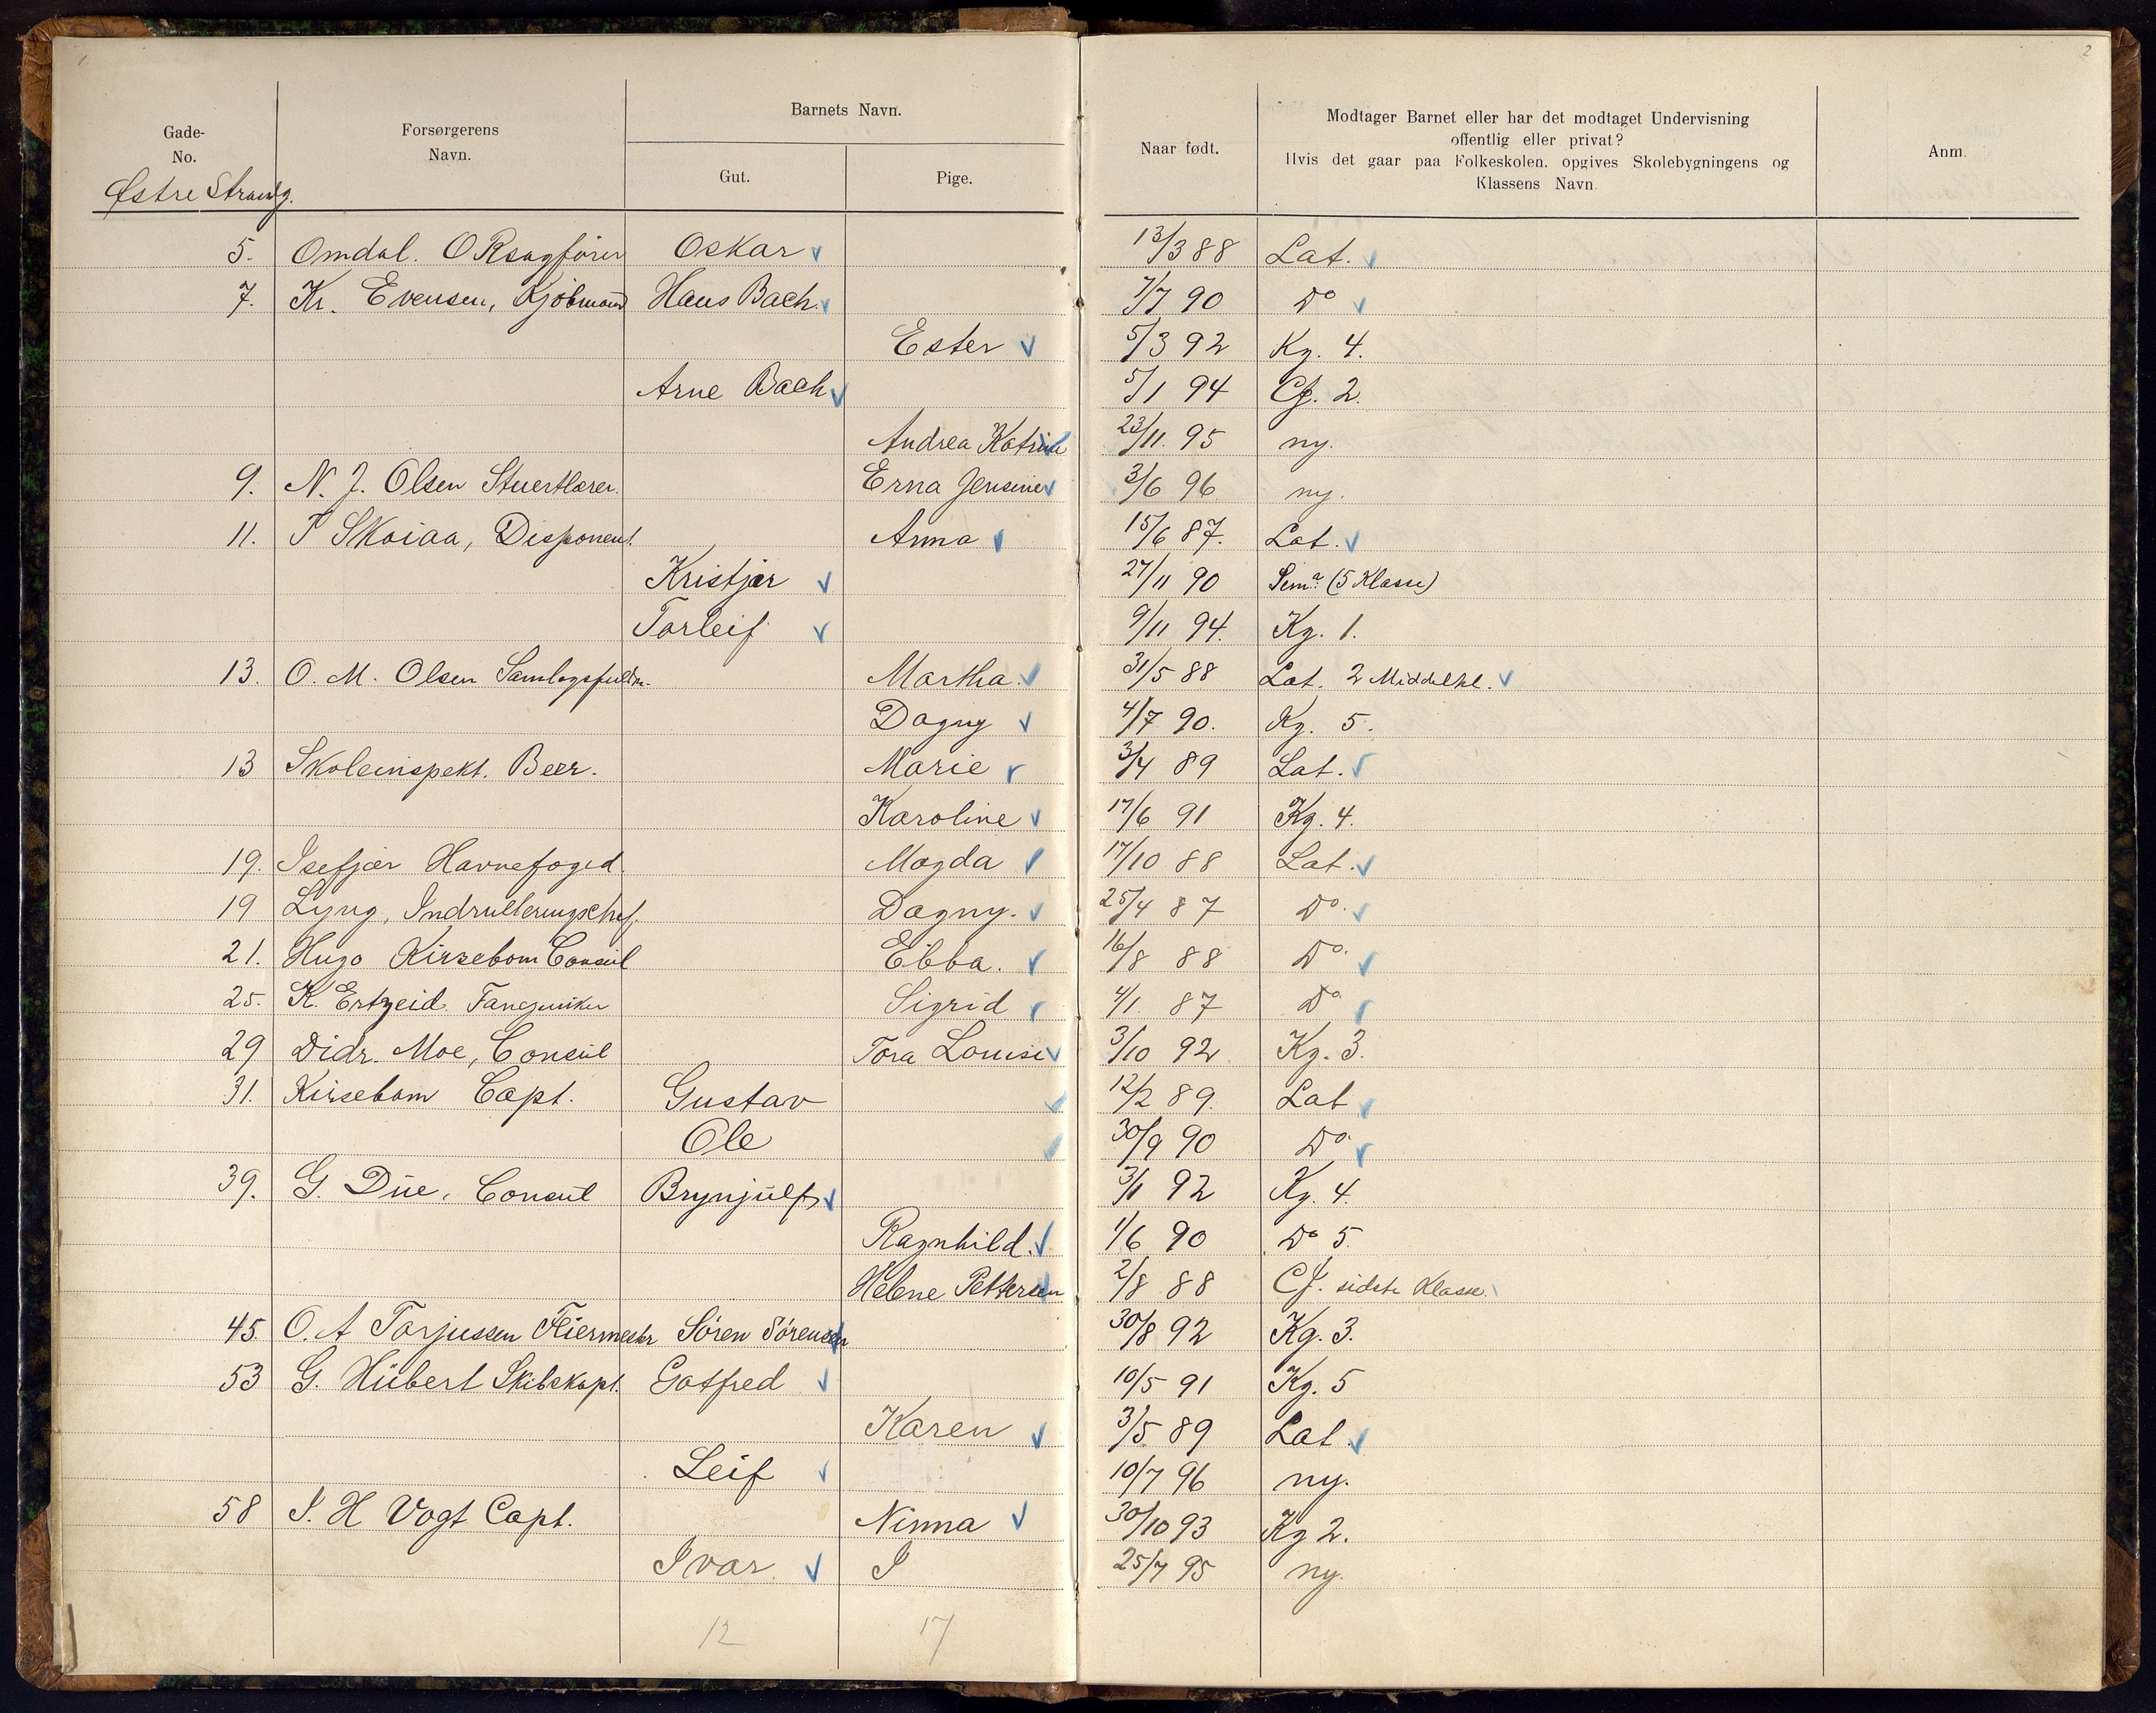 1
2
Gade-
No.
Forsørgerens
Navn.
Barnets Navn.
Gut.
Pige.
Naar født.
Modtager Barnet eller har det modtaget Undervisning
offentlig eller privat?
Hvis det gaar paa Folkeskolen. opgives Skolebygningens og
Klassens Navn.
Anm.
Østre Strandg.
5. Omdal. O Rsagfører Oskar 13/3 88 Lat.
7. Kr. Evensen, Kjøbmand Hans Bach. 7/7 90 Do
Ester 5/3 92 Kg. 4.
Arne Bach 5/1 94 Cf. 2.
Andrea Katrine 23/11. 95 ny.
9. N. J. Olsen Stuertlærer. Erna Jensine 3/6 96 ny.
11. T Skoiaa, Disponent. Anna 15/6 87. Lat.
Kristjar 27/11 90 Sem. (5 Klasse)
Torleif 9/11 94. Kg. 1.
13. O. M. Olsen Samlagsfuldm. Martha. 31/5 88 Lat. 2 Middelkl.
Dagny 4/7 90. Kg. 5.
13 Skoleinspekt. Beer. Marie 3/4 89 Lat.
Karoline 17/6 91 Kg. 4.
19. Isefjær Havnefoged. Magda 17/10 88 Lat.
19 Lyng, Indrulleringschef. Dagny. 25/4 87 Do.
21. Hugo Kirsebom Consul Ebba. 16/8 88 Do.
25. K. Ertzeid. Sigrid 4/1. 87 Do
29 Didr. Moe, Consul Tora Louise 3/10 92 Kg. 3.
31. Kirsebom Capt. Gustav 12/2 89. Lat
Ole 30/9 90 Do
39. G. Düe, Consul Brynjulf 3/1 92 Kg. 4.
Ragnhild. 1/6 90 Do 5.
Helene Pettersen 2/8 88 Cf. sidste Klasse.
45. O. A Torjussen Feiermester Søren Sørensen 30/8 92 Kg. 3.
53 G. Hübert Skibskapt. Gotfred 10/5 91 Kg. 5
Karen 3/5 89 Lat.
Leif 10/7 96 ny.
58 J. H Vogt Capt. Ninna 30/10 93 Kg 2.
Ivar. I 25/7 95 ny.
12 17